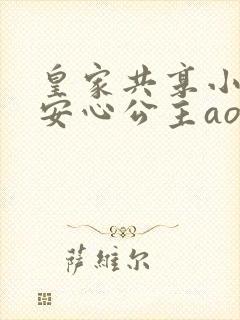 皇家共享小
安心公主ao
萨維尔